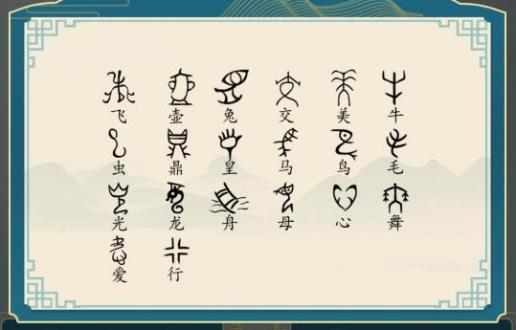 飞 壶 兔 交 美 牛
虫 鼎 皇 马 鸟 毛
光 龙 舟 母 心 舞
爱 行